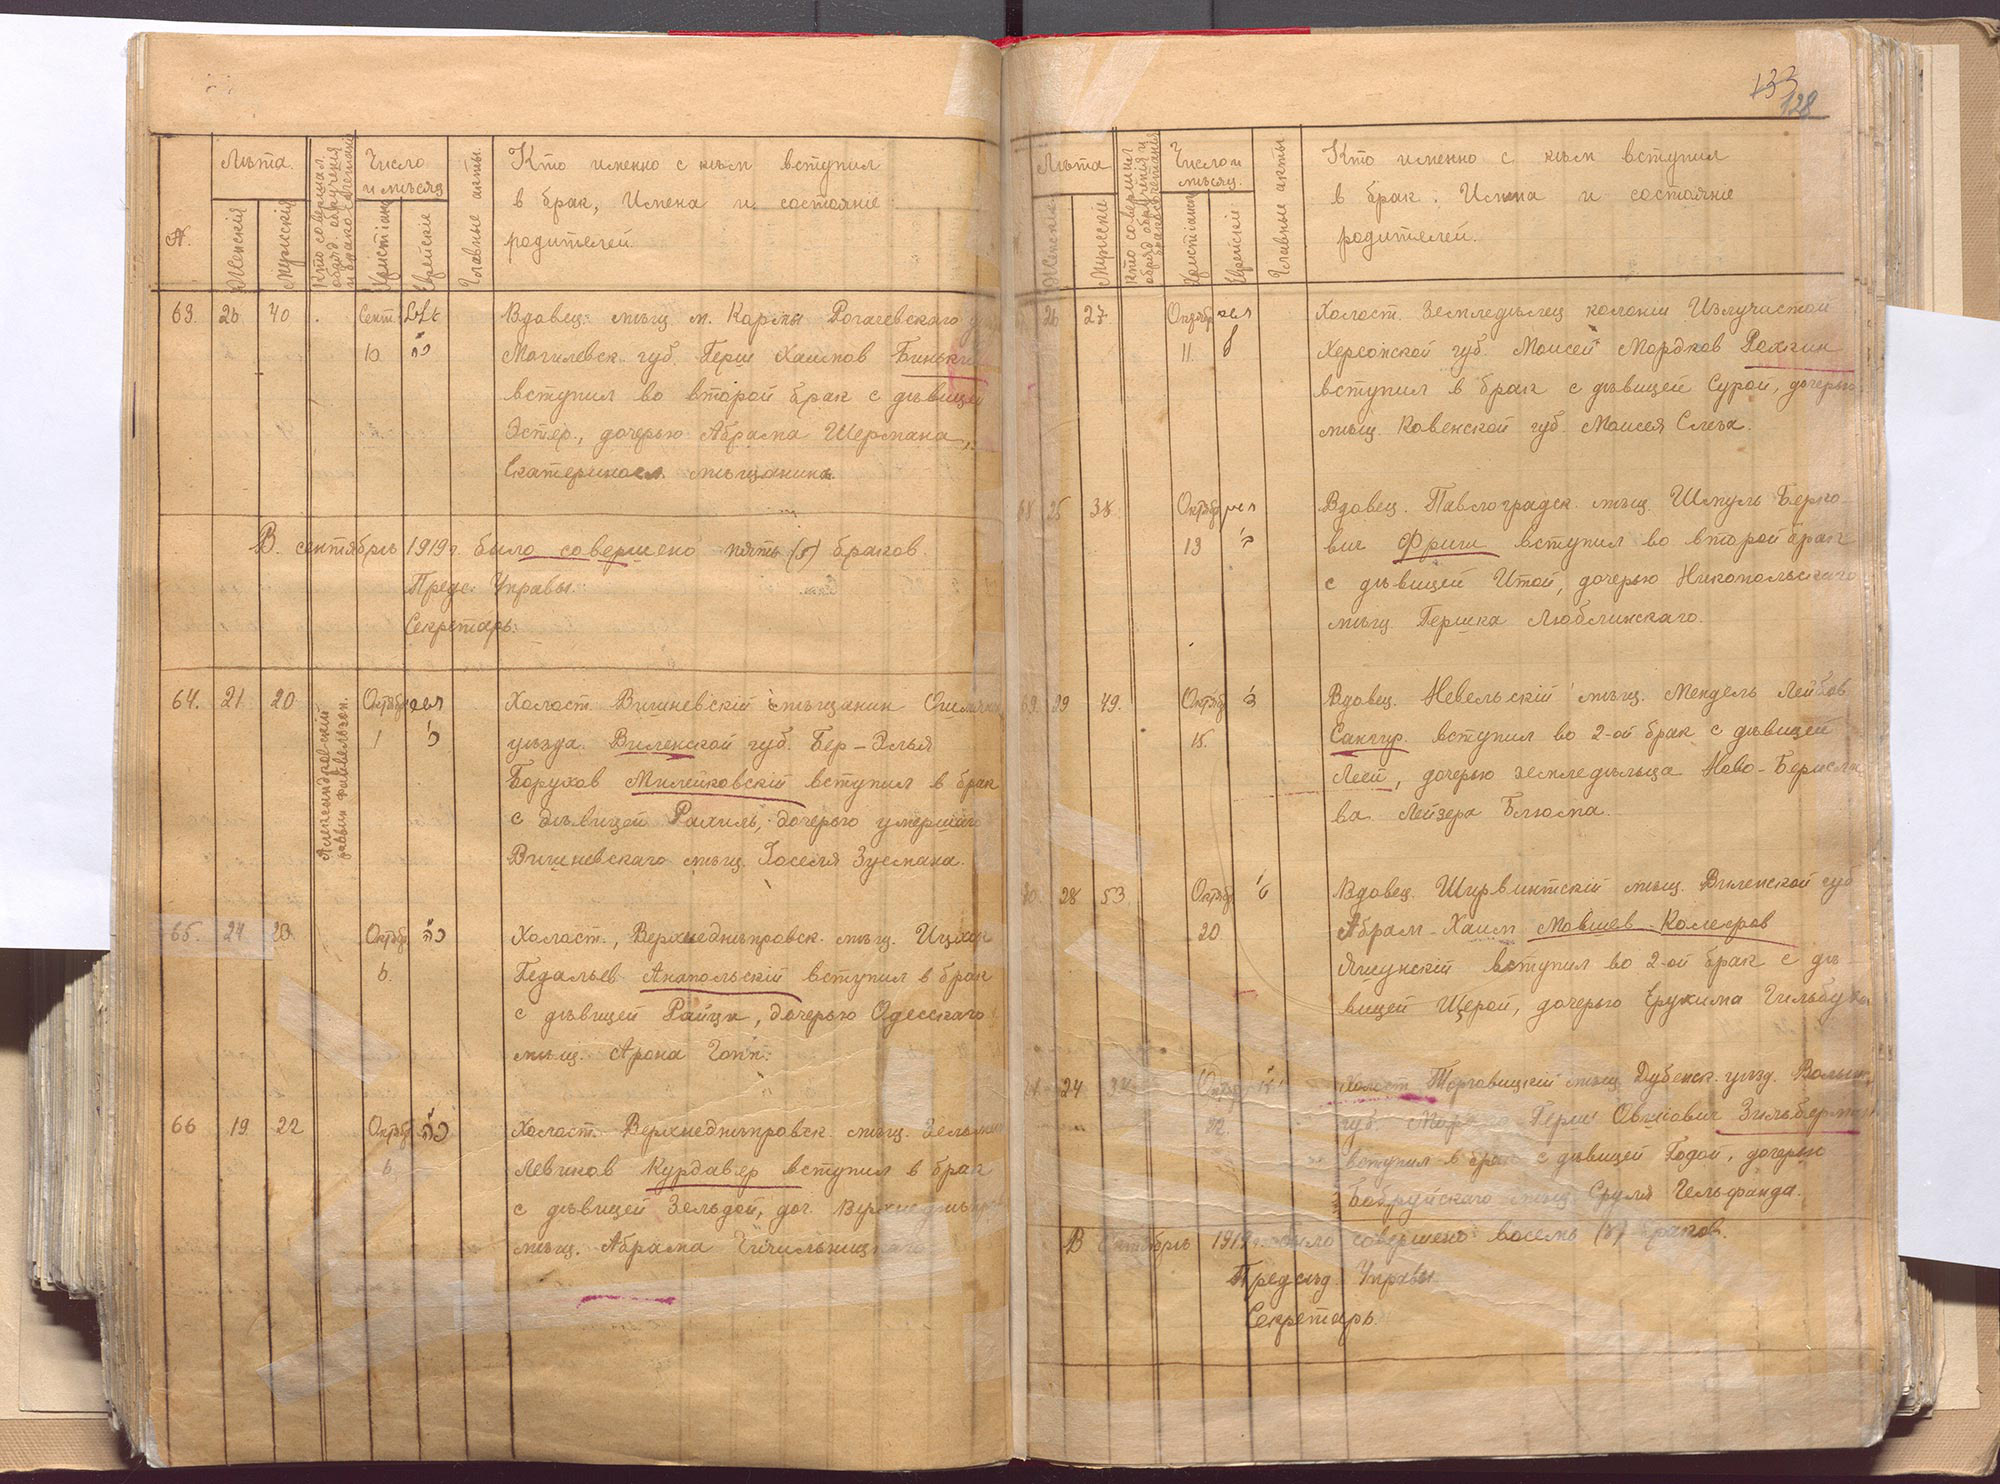 №.
Лѣта.
Женскія
Мужскія
Кто совершал.
обряд. обрученія
и бракосочетанія
Число
и мѣсяц
Христіанск
Еврейскіе
Главные акты.
Кто именно с кѣм вступил
в брак, Имена и состояніе
родителей.
63. 26 40 Сент.
10 כ״ה
Вдовец. мѣщ. м. Кормы Рогачевскаго
Могилевск. губ. Герш Хаимов
вступил во второй брак с дѣвицей
Эстер, дочерью Абрама Шермана,
Екатериносл. мѣщанина.
В сентябрѣ 1919 г. было совершено пять (5) браков.
Предс. Управы.
Секретарь.
64. 21 20
Александровскій
равви
Октябр
1
Холост. Вишневскій мѣщанин
уѣзда. Виленской губ. Бер-Элья
Борухов Милейковскій вступил в брак
с дѣвицей Рахиль, дочерью умершаго
Вишневскаго мѣщ. Іоселя Зусмана.
65. 24 23 Октябр.
6.
Холост., Верхнеднѣпровск. мѣщ. Ицхок
Гедальев Анапольскій вступил в брак
с дѣвицей Райцы, дочерью Одесскаго
мѣщ. Арона Гопп.
66 19 22 Октябр
6.
Холост. Верхнеднѣпровск. мѣщ.
Левиков Курдавер вступил в брак
с дѣвицей Зельдой, доч.
мѣщ. Абрама
133
128
Лѣта
Женскіе
Мужскіе
Кто совершил
обряд обрученія и
бракосочетанія
Число и
мѣсяц.
Христіанск
Еврейскіе
Главные акты
Кто именно с кѣм вступил
в брак. Имена и состояніе
родителей.
26 27 Октябр
11.
Холост. Земледѣлец колоніи Излучистой
Херсонской губ. Моисей Мордков Рохкин
вступил в брак с дѣвицей Сурой, дочерью
мѣщ. Ковенской губ. Моисея
68 25 38. Октябр
13
Вдовец. Павлоградск. мѣщ. Шмуль Берко-
вич Фриш вступил во второй брак
с дѣвицей Итой, дочерью Никопольскаго
мѣщ. Гершка Люблинскаго.
69. 29 49. Октябр
15.
Вдовец. Невельскій мѣщ. Мендель Лейбов
Сангур вступил во 2-ой брак с дѣвицей
Леей, дочерью земледѣльца Ново-Берисла
ва Лейзера Блюма.
70. 28 53. Октябр
20.
Вдовец. Ширвинтскій мѣщ. Виленской губ
Абрам-Хаим Мовшев
вступил во 2-ой брак с дѣ-
вицей Щерой, дочерью
24 Октябр
22.
Холост. Торговицкій мѣщ. Дубенск. уѣзд. Волын.
губ. Герш Овшіович Зильберман
вступил в брак с дѣвицей Годой, дочерью
Бобруйскаго мѣщ. Сруля Гельфанда.
В Октябрѣ 1919 г. было совершено восемь (8) браков.
Предсѣд. Управы
Секретарь.